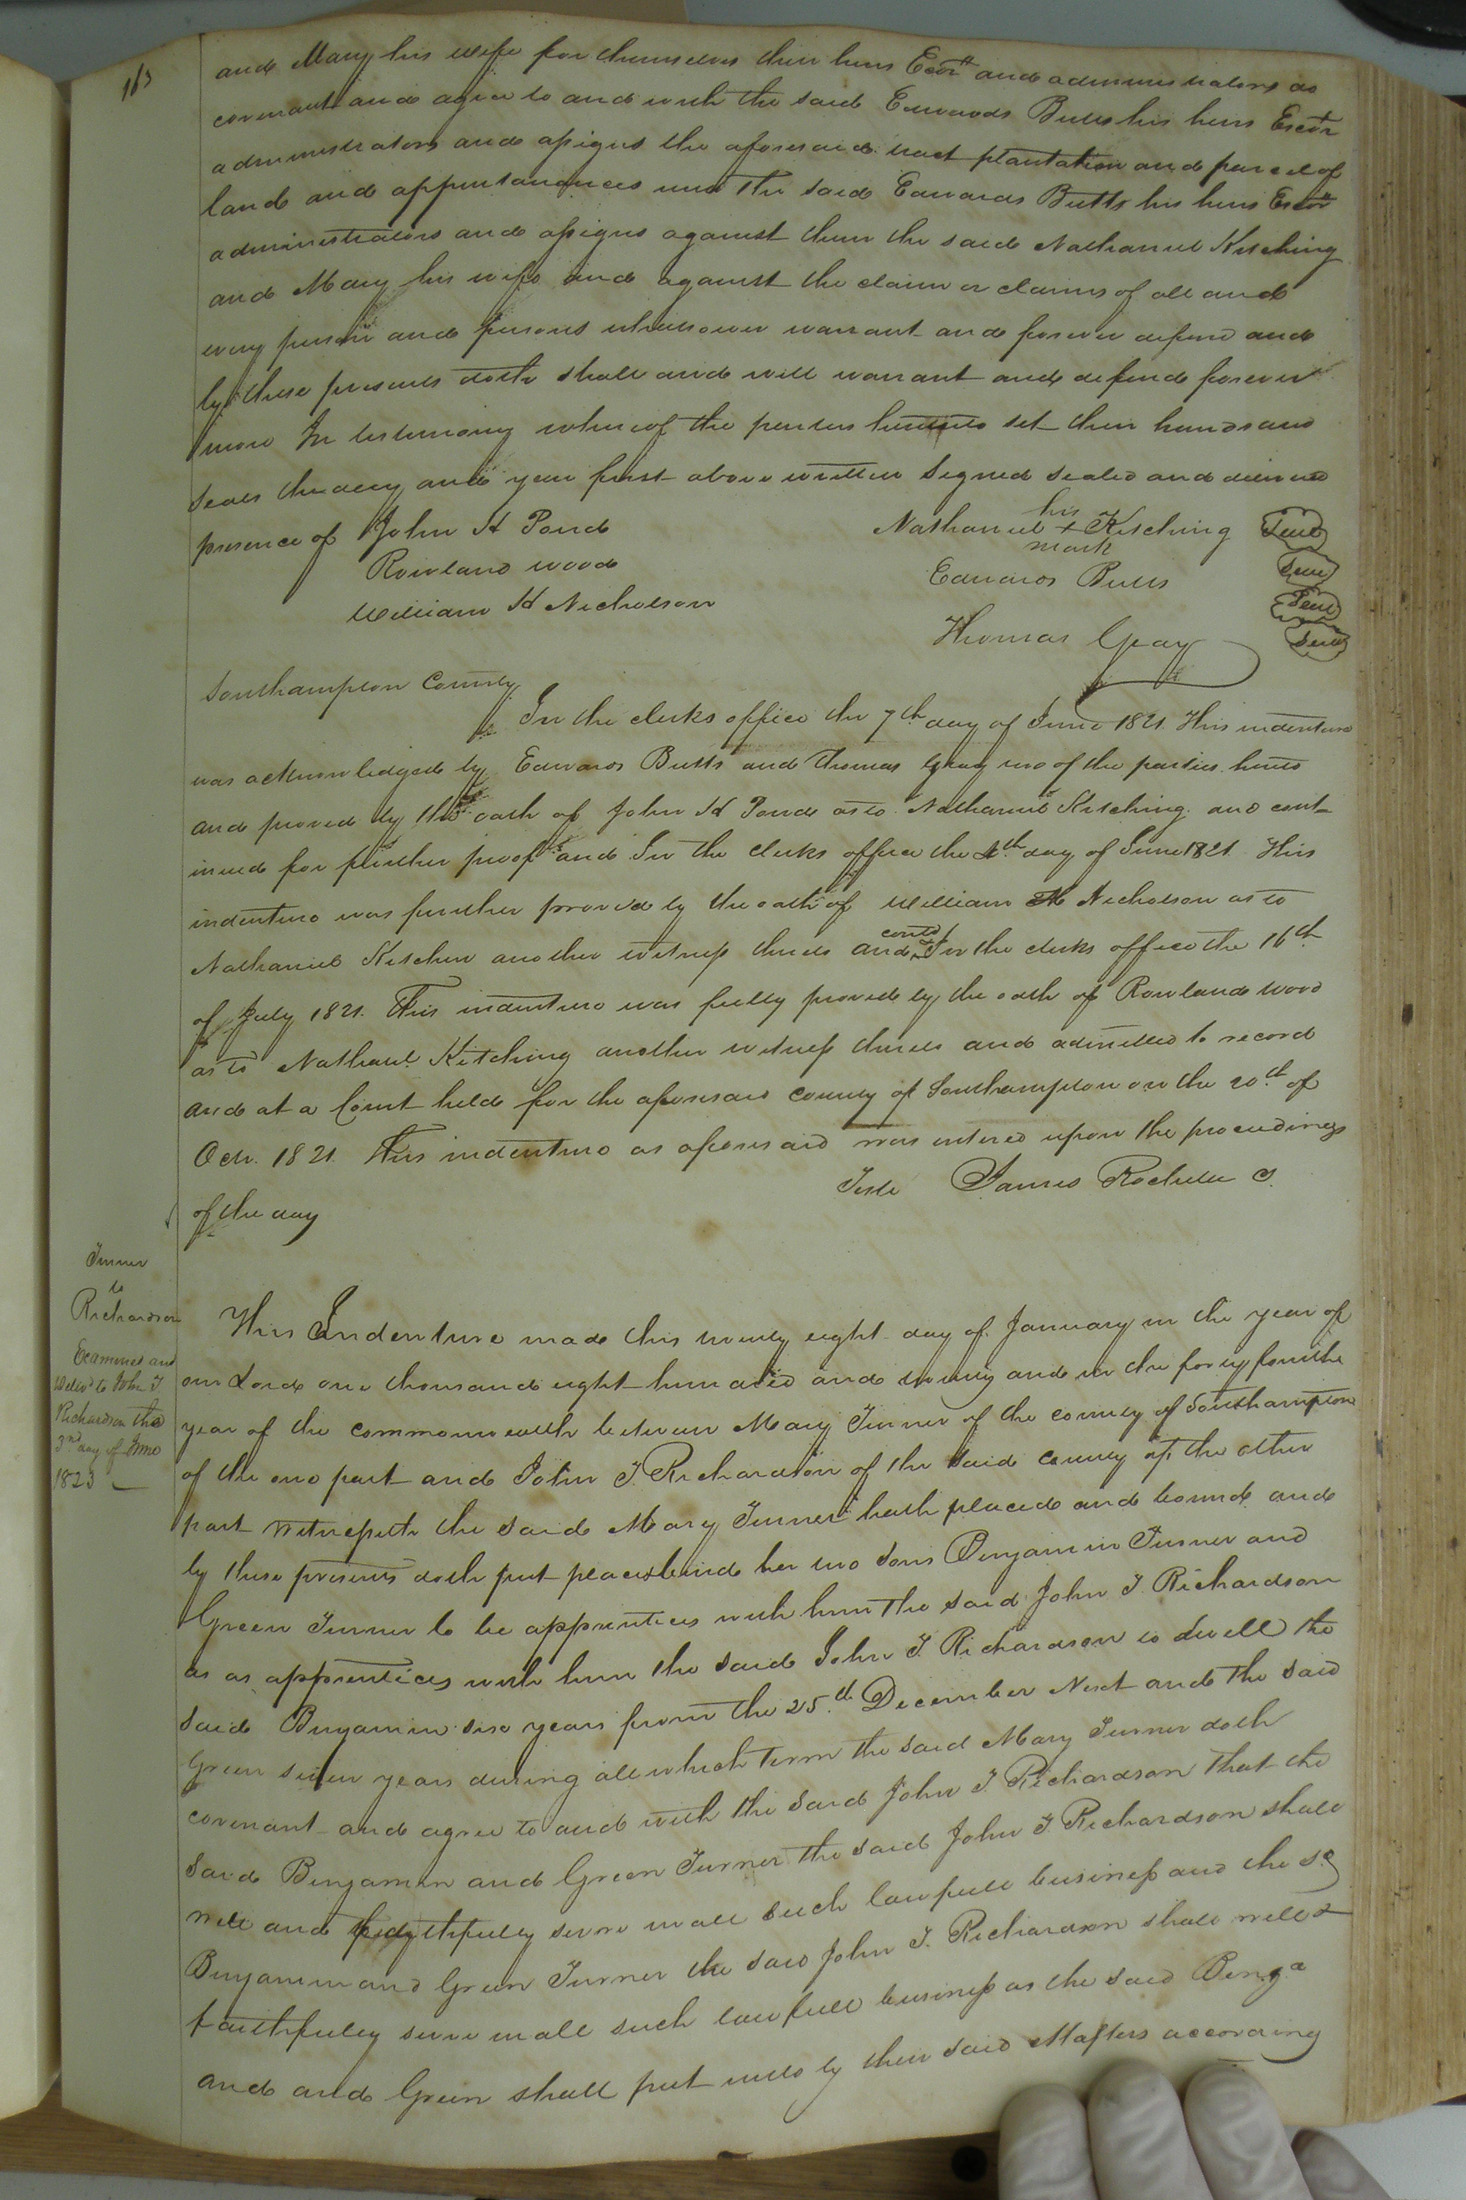 163
and Mary his wife for themselves their heirs Exors and administrators do
covenant and agree to and with the said Edwards Butts his heirs Exors
administrators and assigns the aforesaid tract plantation and parcel of
land and appurtanances unto the said Edwards Butts his heirs Exors
administrators and assigns against them the said Nathaniel Kitching
and Mary his wife and against the claim or claims of all and
every person and persons whatsoever warrant and forever defend and
by these presents doth shall and will warrant and defend forever
more In testimony whereof the parties hereunto set their hands and
seals the day and year first above written Signed sealed and delivered
presence of John H Pond
Rowland Wood
William H Nicholson
his
Nathaniel + Kitching Seal
mark
Edwards Butts Seal
Seal
Thomas Gray Seal
Southampton County
In the clerks office the 7th day of June 1821. This indenture
was acknowledged by Edwards Butts and Thomas Gray two of the parties hereto
and proved by the oath of John H Pond as to Nathaniel Kitching and cont-
inued for further proof and In the clerks office the day of June 1821 This
indenture was further proved by the oath of William H Nicholson as to
Nathaniel Kitchen another witness thereto and contd. In the clerks office the 16th
of July 1821. This indenture was fully proved by the oath of Rowland Wood
as to Nathanl. Kitching another witness thereto and admitted to record
and at a Court held for the aforesaid county of Southampton on the 20th of
Octr. 1821. This indenture as aforesaid was entered upon the proceedings
of the day
Teste James Rochelle C.
Turner
to
Richardson
Examined and
Delivd to John T
Richardson the
3rd day of June
1823
This Indenture made this twenty eight day of January in the year of
our Lord one thousand eight hundred and twenty and in the forty fourth
year of the commonwealth between Mary Turner of the county of Southampton
of the one part and John T. Richardson of the said county of the other
part Witnesseth the said Mary Turner hath placed and bound and
by these presents doth put place & bind her two sons Benjamin Turner and
Green Turner to be apprentices with him the said John T Richardson
as as apprentices with him the said John T. Richardson to dwell the
said Benjamin six years from the 25th December Next and the said
Green seven years during all which term the said Mary Turner doth
covenant and agree to and with the said John T. Richardson that the
said Benjamin and Green Turner the said John T Richardson shall
well and faythfully serve in all such lawfull business and the sd
Benjamin and Green Turner the said John T. Richardson shall well &
faithfully serve in all such lawfull business as the said Benja
and and Green shall put unto by their said Masters according